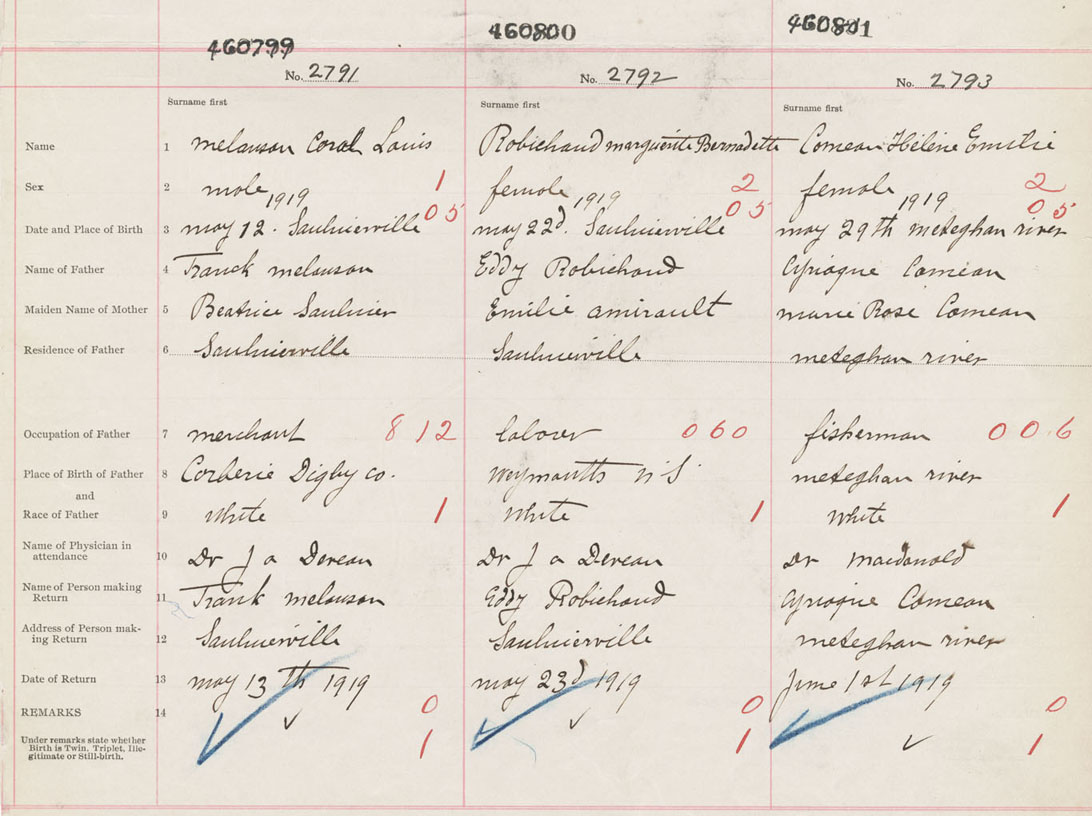 460799 460800 460801
No. 2791 No. 2792 No. 2793
Surname first Surname first Surname first
Name 1 melanson Coral Louis Robichaud marguérite Bernadette Comeau Hélène Emilie
Sex 2 male 1 female 2 female 2
1919 1919 1919
05 05 05
Date and Place of Birth 3 may 12. Saulnierville may 22d. Saulnierville may 29th meteghan river
Name of Father 4 Franck melanson Eddy Robichaud Cyriaque Comeau
Maiden Name of Mother 5 Beatrice Saulnier Emilie amirault marie Rose Comeau
Residence of Father 6 Saulnierville Saulnierville meteghan river
Occupation of Father 7 merchant 812 laborer 060 fisherman 006
Place of Birth of Father 8 Corberie Digby co. Weymouth N S meteghan river
and
Race of Father 9 White 1 White 1 White 1
Name of Physician in
attendance 10 Dr J a Deveau Dr J a Deveau Dr macdonald
Name of Person making
Return 11 Frank melanson Eddy Robichaud Cyriaque Comeau
Address of Person mak-
ing Return 12 Saulnierville Saulnierville meteghan river
Date of Return 13 may 13th 1919 may 23d 1919 June 1st 1919
REMARKS 14 0 0 0
Under remarks state whether
Birth is Twin, Triplet, Ille-
gitimate or Still-birth. 1 1 1